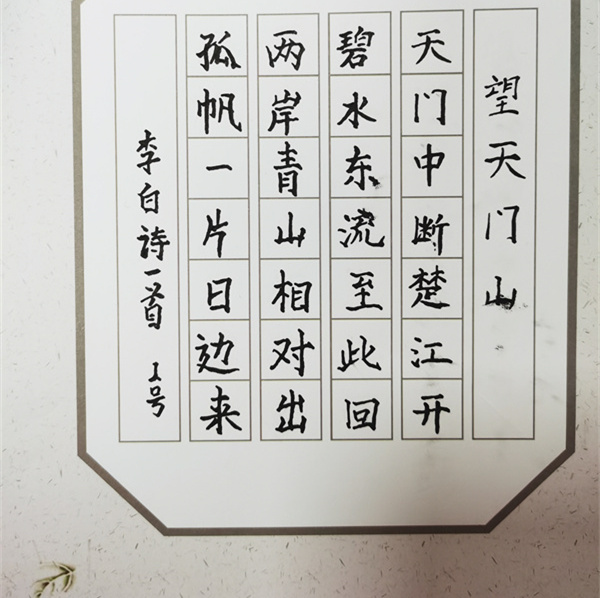 望天门山
天门中断楚江开
碧水东流至此回
两岸青山相对出
孤帆一片日边来
李白诗一首 1号